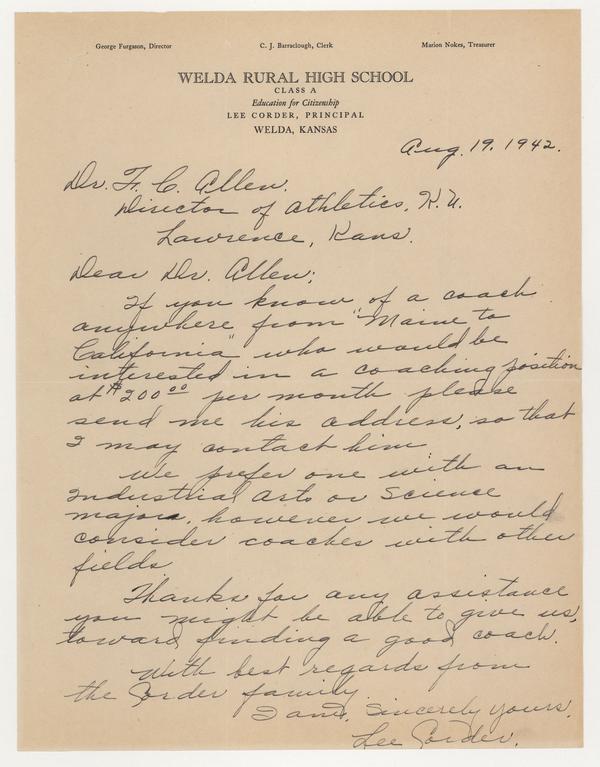 George Furgason, Director C. J. Barraclough, Clerk Marion Nokes, Treasurer
WELDA RURAL HIGH SCHOOL
CLASS A
Education for Citizenship
LEE CORDER, PRINCIPAL
WELDA, KANSAS
Aug. 19, 1942.
Dr. F. C. Allen.
Director of athletics, K.U.
Lawrence, Kans.
Dear Dr. Allen;
If you know of a coach
anywhere from "Maine to
California" who would be
interested in a coaching position
at $200 00 per month please
send me his address, so that
I may contact him.
We prefer one with an
Industrial Arts or Science
major, however we would
consider coaches with other
fields.
Thanks for any assistance
you might be able to give us,
toward finding a good coach.
With best regards from
the Corder family.
I am, Sincerely yours,
Lee Corder.